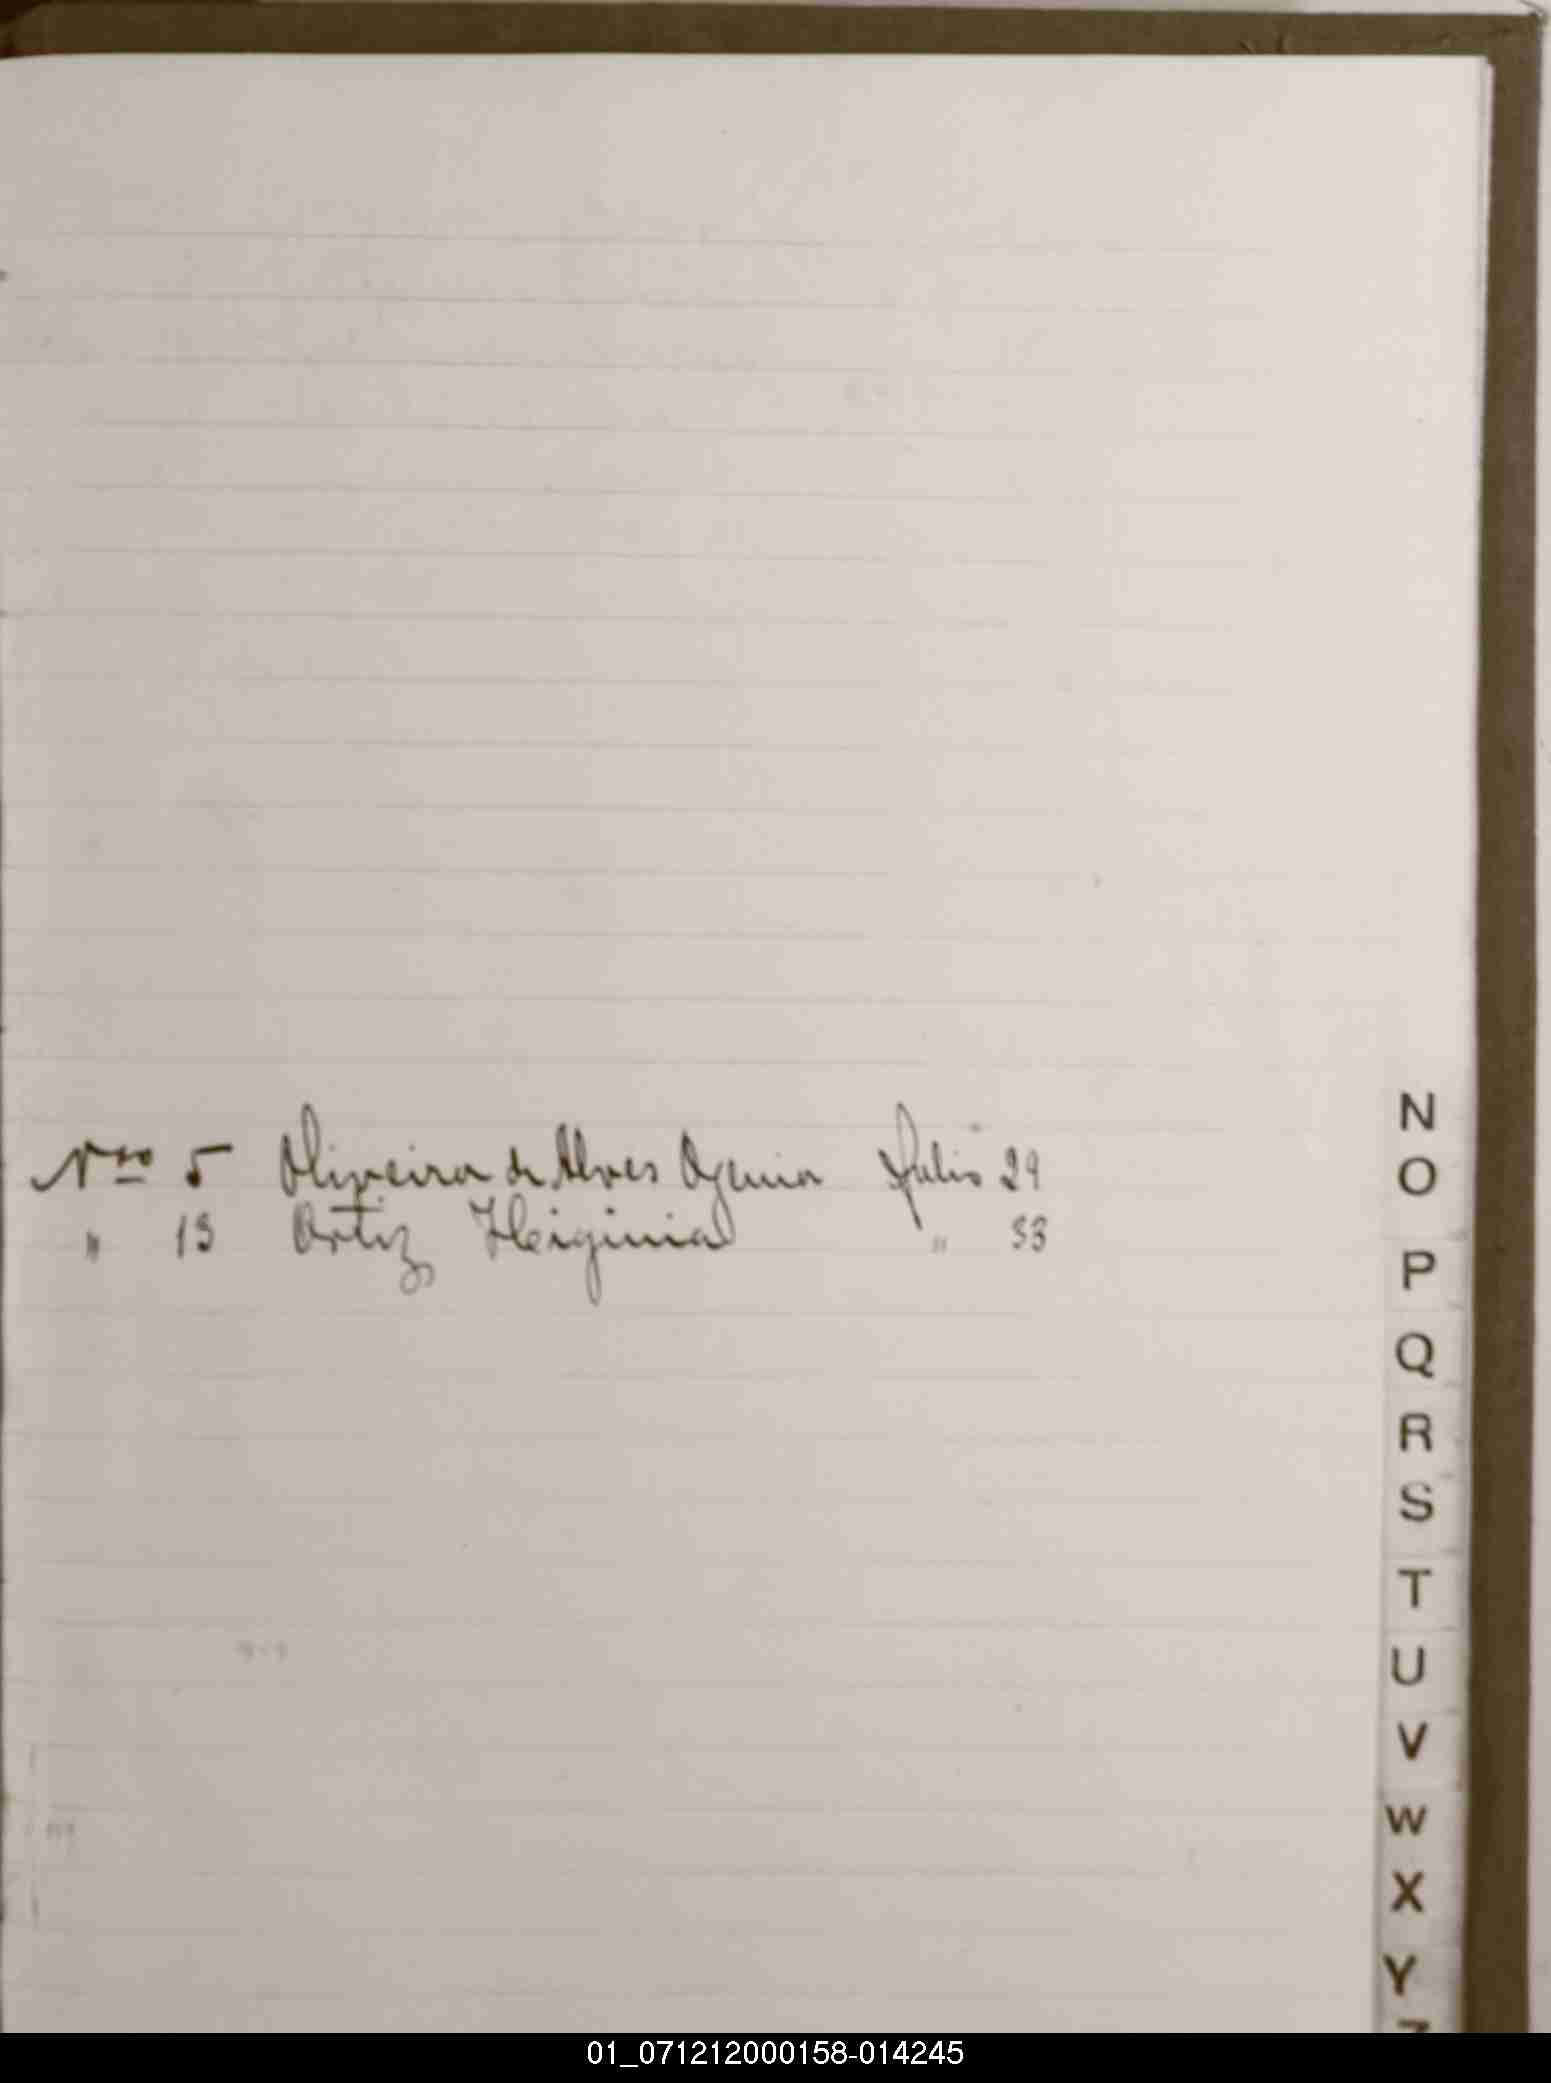 Nro 5 Oliveira de Alves Ozenia folio 29
" 13 Ortiz Heiginia " 33
N
O
P
Q
R
S
T
U
V
W
X
Y
01_071212000158-014245